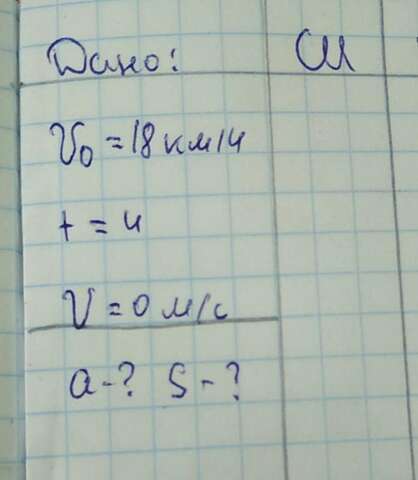 Дано: СИ
V₀ = 18 км/ч
t = 4
V = 0 м/с
a - ? S - ?